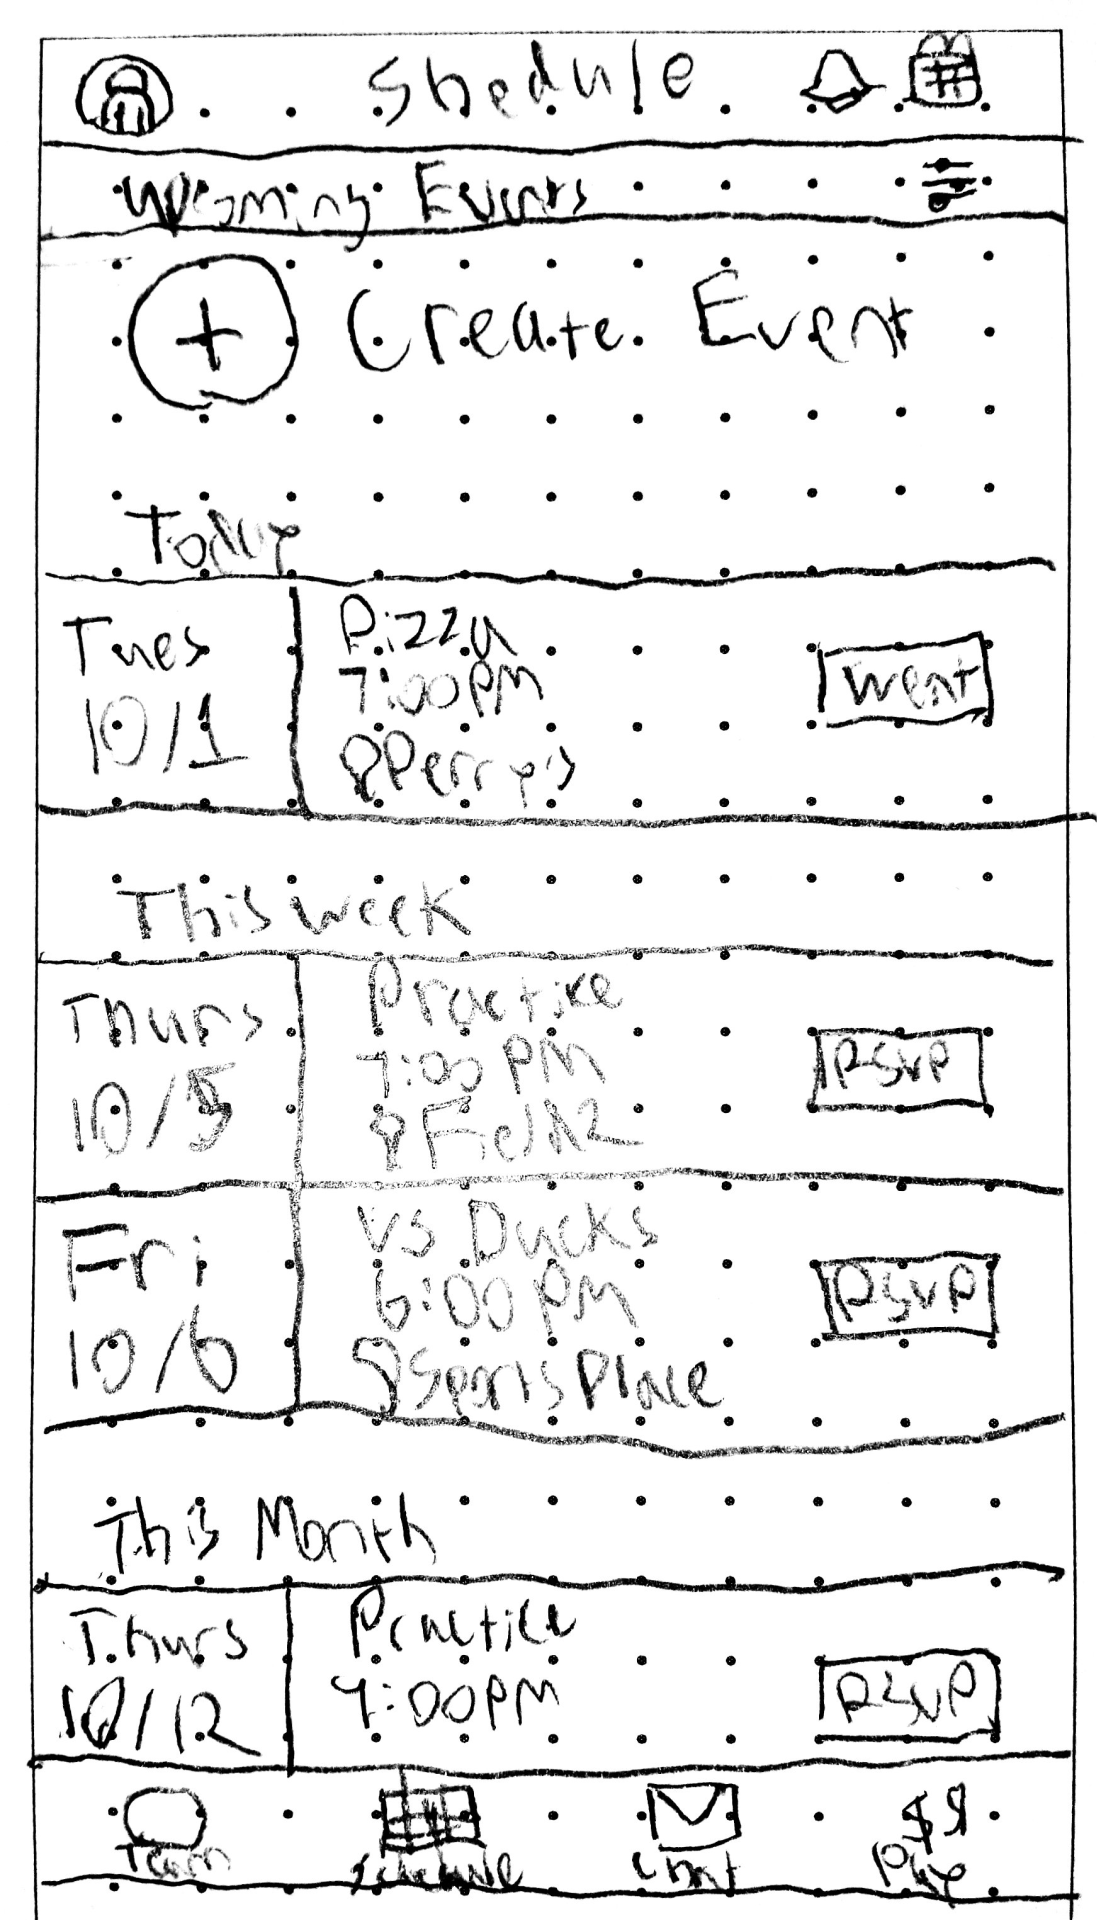 Shedule
Upcoming Events
+ Create Event
Today
Tues
10/1
Pizza
7:00PM
Perry's
Went
This week
Thurs
10/5
Practice
7:00 PM
Field 2
RSVP
Fri
10/6
VS Ducks
6:00 PM
Sports Place
RSVP
This Month
Thurs
10/12
Practice
RSVP
Team
Schedule
Chat
$$
Pay